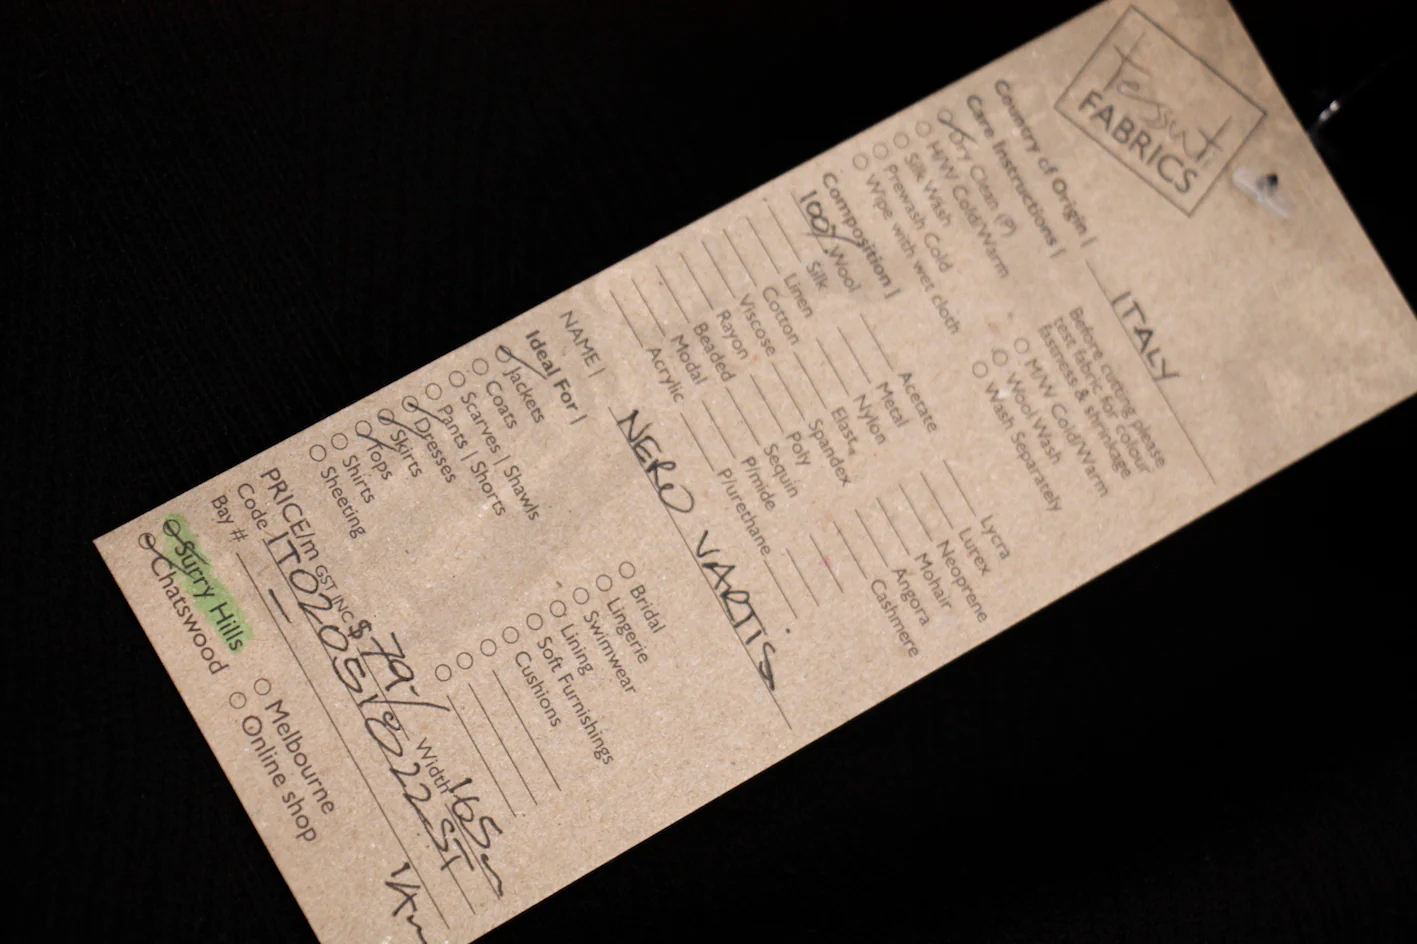 tessuti
FABRICS
Country of Origin | ITALY
Care Instructions |
Dry Clean (P)
H/W Cold/Warm
Silk Wash
Prewash Cold
Wipe with wet cloth
Before cutting please
test fabric for colour
fastness & shrinkage
M/W Cold/Warm
Wool Wash
Wash Separately
Composition |
100% Wool
Silk
Linen
Cotton
Viscose
Rayon
Beaded
Modal
Acrylic
Acetate
Metal
Nylon
Elast.
Spandex
Poly
Sequin
P/mide
P/urethane
Lycra
Lurex
Neoprene
Mohair
Angora
Cashmere
NAME | NERO VARTIS
Ideal For |
Jackets
Coats
Scarves | Shawls
Pants | Shorts
Dresses
Skirts
Tops
Shirts
Sheeting
Bridal
Lingerie
Swimwear
Lining
Soft Furnishings
Cushions
PRICE/m GST INC $ 79.- Width 165
Code
Bay # -
Surry Hills
Chatswood
Melbourne
Online shop